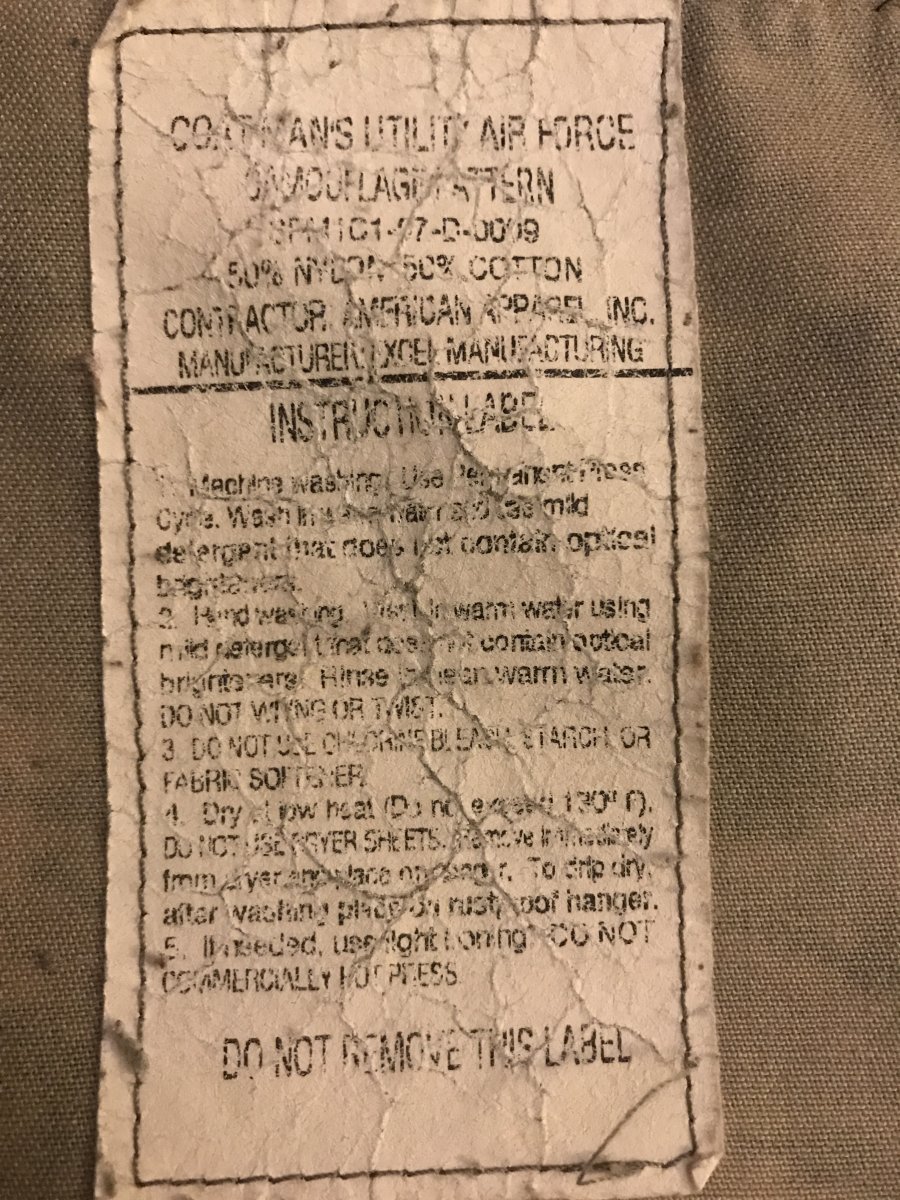 COAT MAN'S UTILITY AIR FORCE
CAMOUFLAGE PATTERN
SPM1C1-07-D-0009
50% NYLON 50% COTTON
CONTRACTOR: AMERICAN APPAREL, INC.
MANUFACTURER: EXCEL MANUFACTURING
INSTRUCTION LABEL
1. Machine washing: Use Permanent Press
Cycle. Wash in warm and use mild
detergent that does not contain optical
brighteners.
2. Hand washing: Wash in warm water using
mild detergent that does not contain optical
brighteners. Rinse in clean warm water.
DO NOT WRING OR TWIST.
3. DO NOT USE CHLORINE BLEACH, STARCH OR
FABRIC SOFTENER.
4. Dry at low heat (Do not exceed 130° F).
DO NOT USE DRYER SHEETS. Remove immediately
from dryer and place on hanger. To drip dry,
after washing place on rustproof hanger.
5. If needed, use light ironing. DO NOT
COMMERCIALLY HOT PRESS.
DO NOT REMOVE THIS LABEL